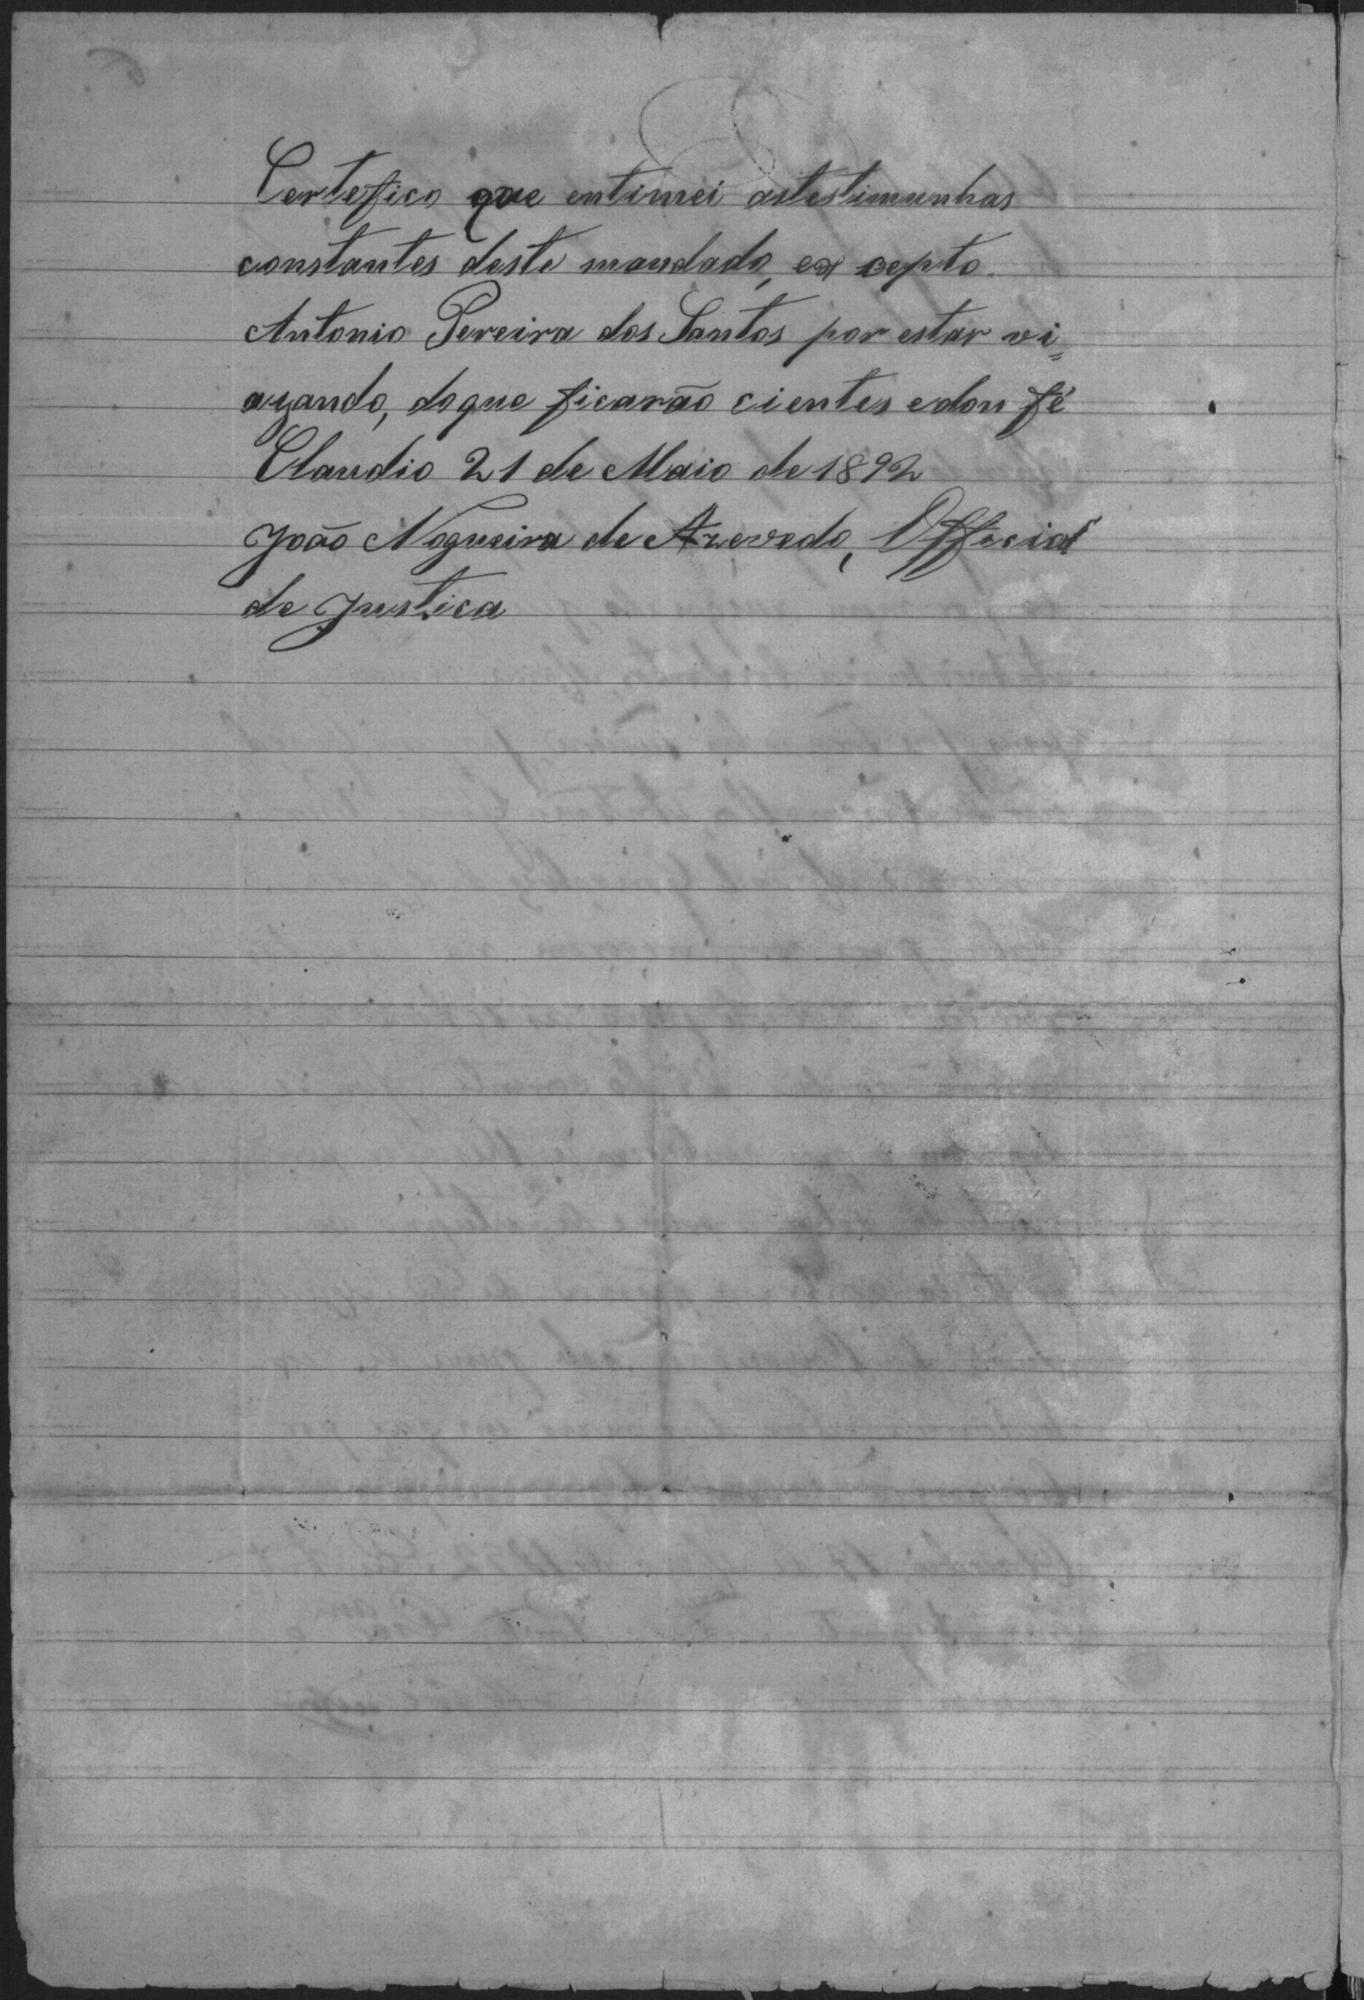 Certefico que entimei astestimunhas
constantes deste mandado, ex cepto
Antonio Pereira dos Santos por estar vi=
ajando, doque ficarão cientes edou fé
Claudio 21 de Maio de 1892
João Nogueira de Azevedo, Official
de Justica